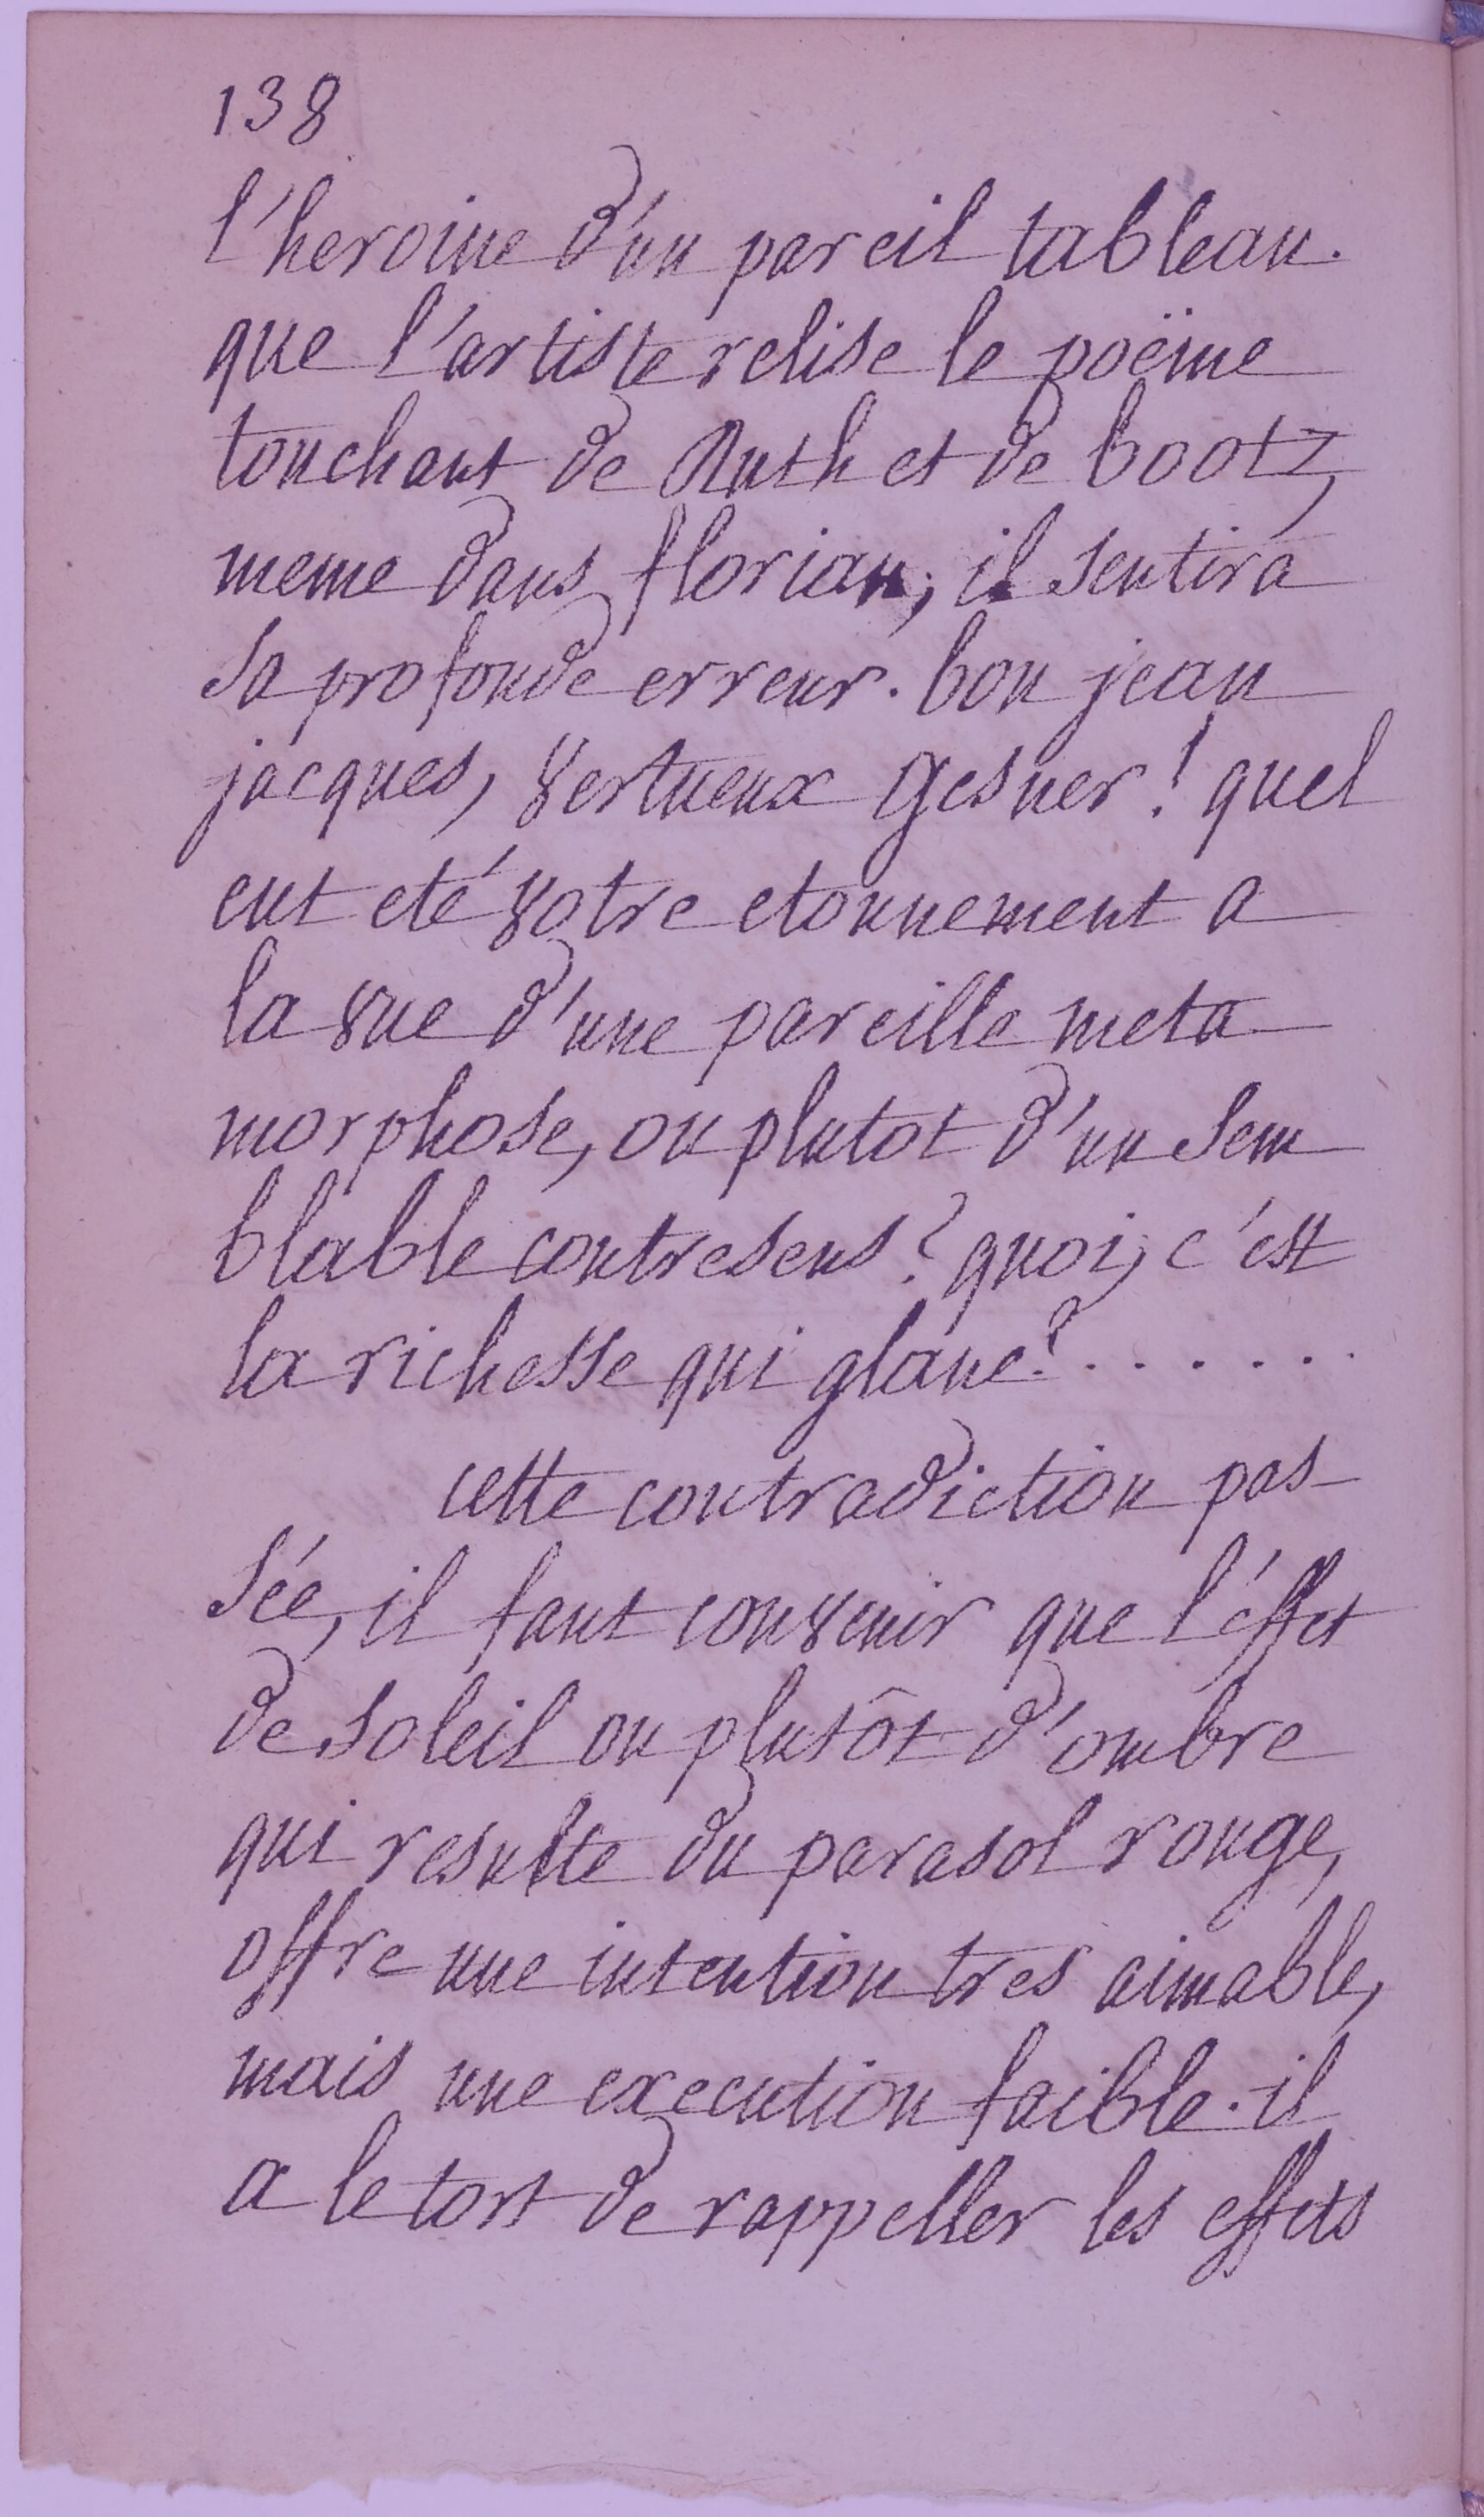 138
l'heroine d'un pareil tableau.
que l'artiste relise le poëme
touchant de Ruth et de bootz,
meme dans florian; il sentira
sa profonde erreur. bon jean
jacques, vertueux gesner! quel
eut eté votre etonnement a
la vue d'une pareille meta
morphose, ou plutot d'un sem
blable contresens? quoi, c'est
la richesse qui glane? . . . . . .
cette contradiction pas-
sée, il faut convenir que l'éffet
de soleil ou plutôt d'ombre
qui resulte du parasol rouge,
offre une intention tres aimable,
mais une execution faible. il
a le tort de rappeller les effets